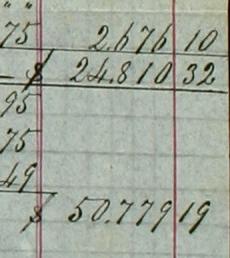 " "
75 2.676 10
$ 24.810 32
95
75
49
$ 50.779 19